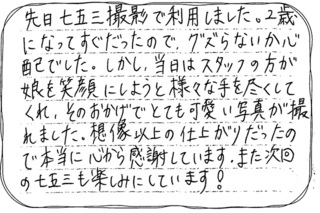 先日七五三撮影で利用しました。2歳
になってすぐだったので、グズらないか心
配でした。しかし、当日はスタッフの方が
娘を笑顔にしようと様々な手を尽くして
くれ、そのおかげでとても可愛い写真が撮
れました。想像以上の仕上がりだったの
で本当に心から感謝しています。また次回
の七五三も楽しみにしています!